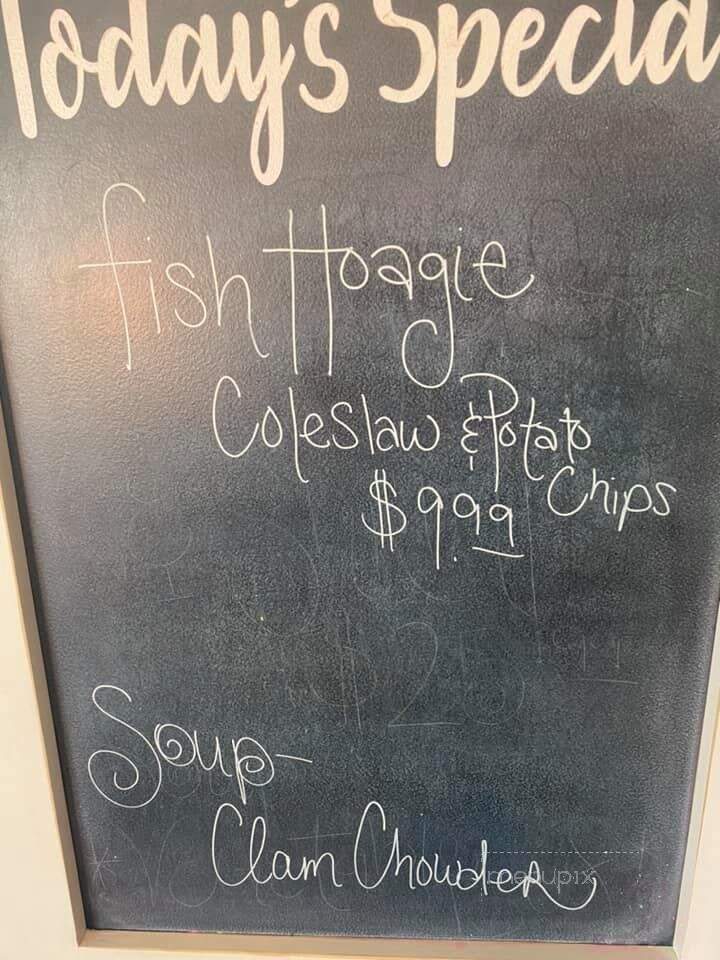 Today's Specia
fish Hoagie
Coleslaw & Potato
Chips
$9.99
Soup-
Clam Chowder
menupix